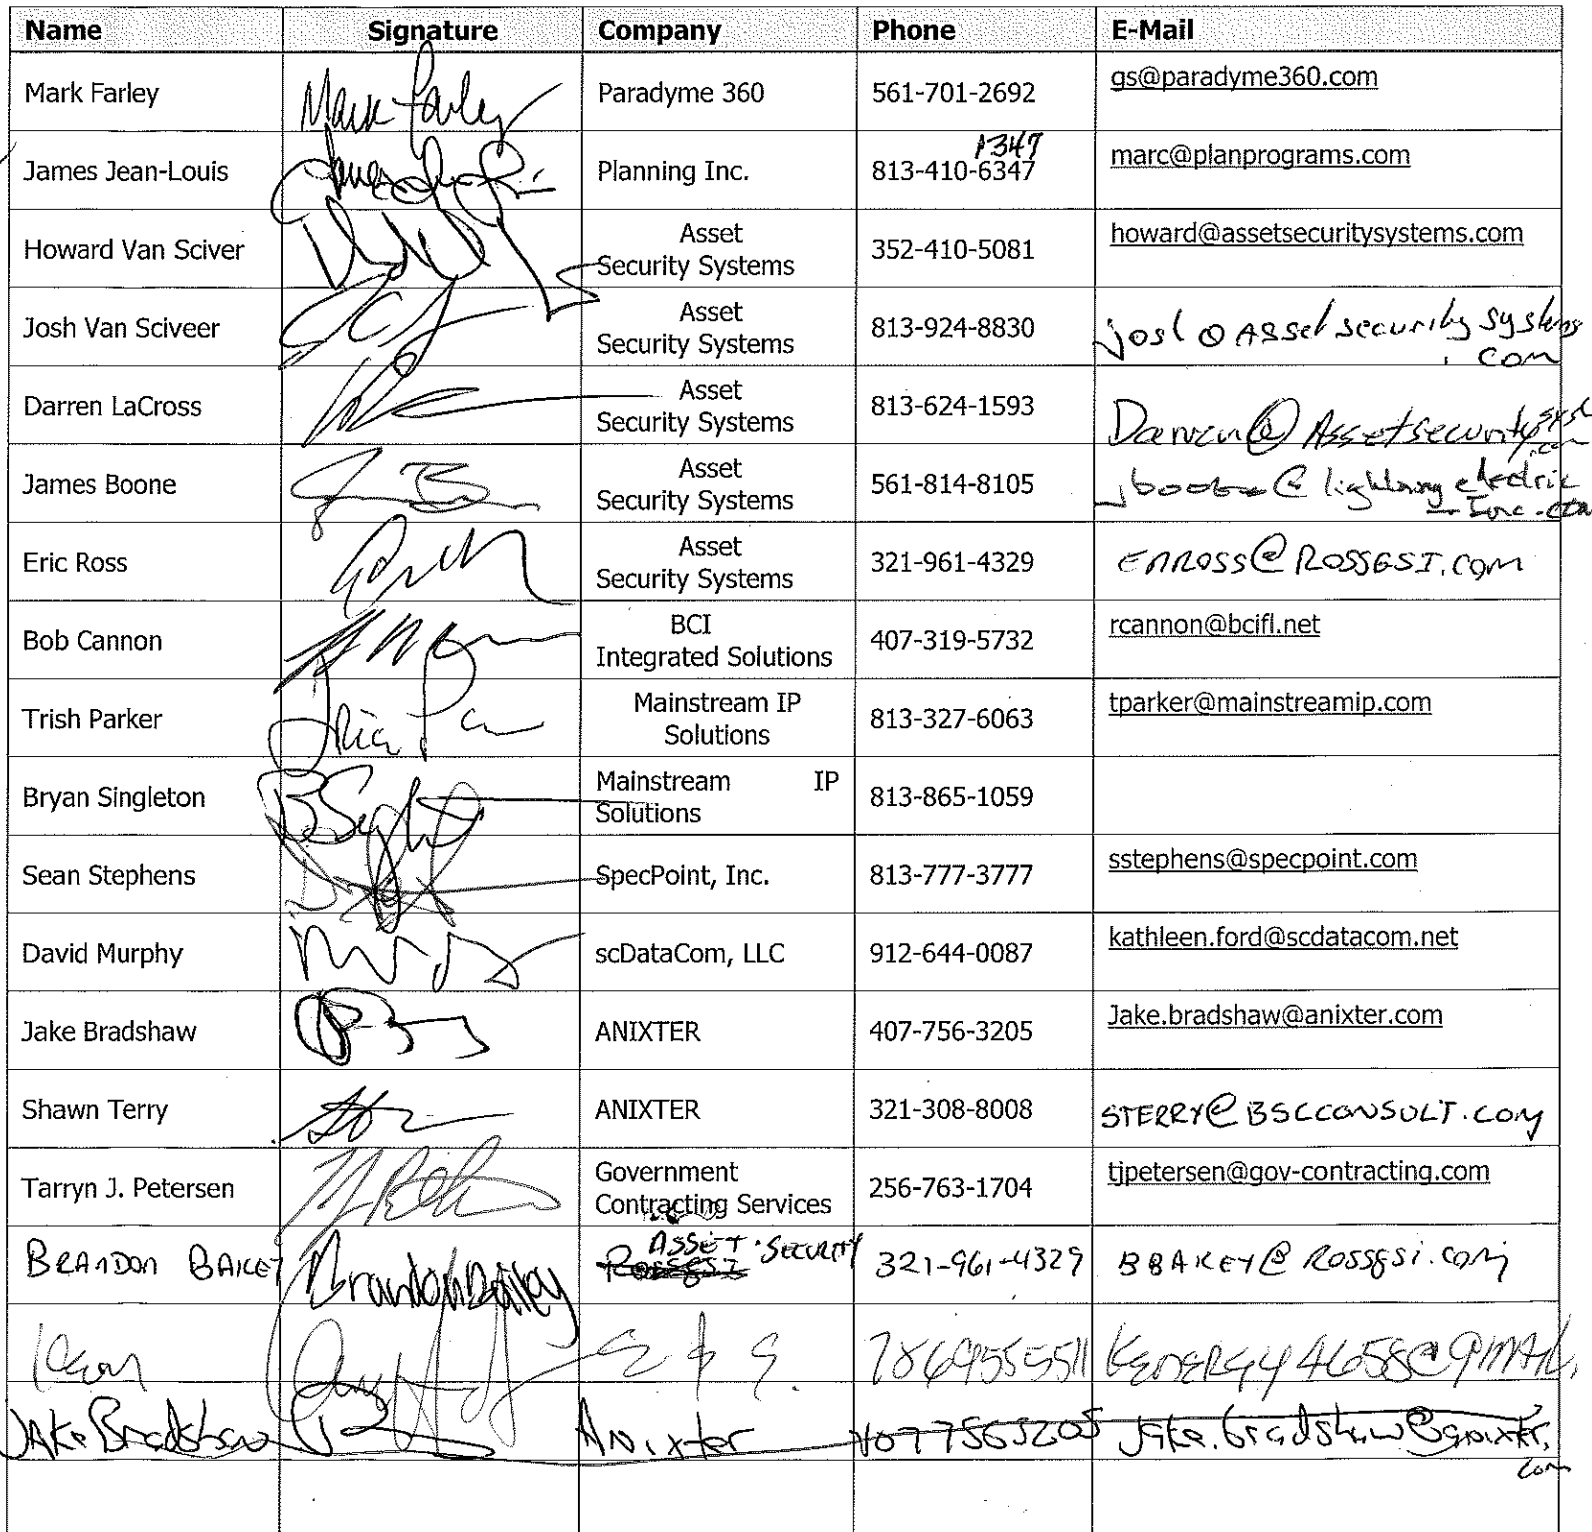 Name Signature Company Phone E-Mail
Mark Farley Mark Farley Paradyme 360 561-701-2692 gs@paradyme360.com
1347
James Jean-Louis Planning Inc. 813-410-6347 marc@planprograms.com
Howard Van Sciver Asset Security Systems 352-410-5081 howard@assetsecuritysystems.com
Josh Van Sciveer Asset Security Systems 813-924-8830 josh@Assetsecuritysystems.com
Darren LaCross Asset Security Systems 813-624-1593 Darren@Assetsecurity
James Boone Asset Security Systems 561-814-8105
Eric Ross Asset Security Systems 321-961-4329 ERROSS@ROSSGSI.COM
Bob Cannon BCI Integrated Solutions 407-319-5732 rcannon@bcifl.net
Trish Parker Mainstream IP Solutions 813-327-6063 tparker@mainstreamip.com
Bryan Singleton Mainstream IP Solutions 813-865-1059
Sean Stephens SpecPoint, Inc. 813-777-3777 sstephens@specpoint.com
David Murphy scDataCom, LLC 912-644-0087 kathleen.ford@scdatacom.net
Jake Bradshaw ANIXTER 407-756-3205 Jake.bradshaw@anixter.com
Shawn Terry ANIXTER 321-308-8008 STERRY@BSCCONSULT.COM
Tarryn J. Petersen Government Contracting Services 256-763-1704 tjpetersen@gov-contracting.com
BRANDON BAILEY Brandon Bailey ASSET SECURITY 321-961-4329 BBAILEY@ROSSGSI.COM
KENERGY4658@GMAIL
Jake Bradshaw Anixter 4077563205 Jake.bradshaw@anixter.com